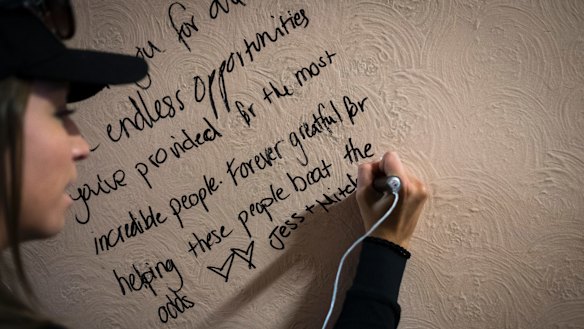 you for all
endless opportunities
you've provided for the most
incredible people. Forever greatful for
helping these people beat the
odds
Jess +